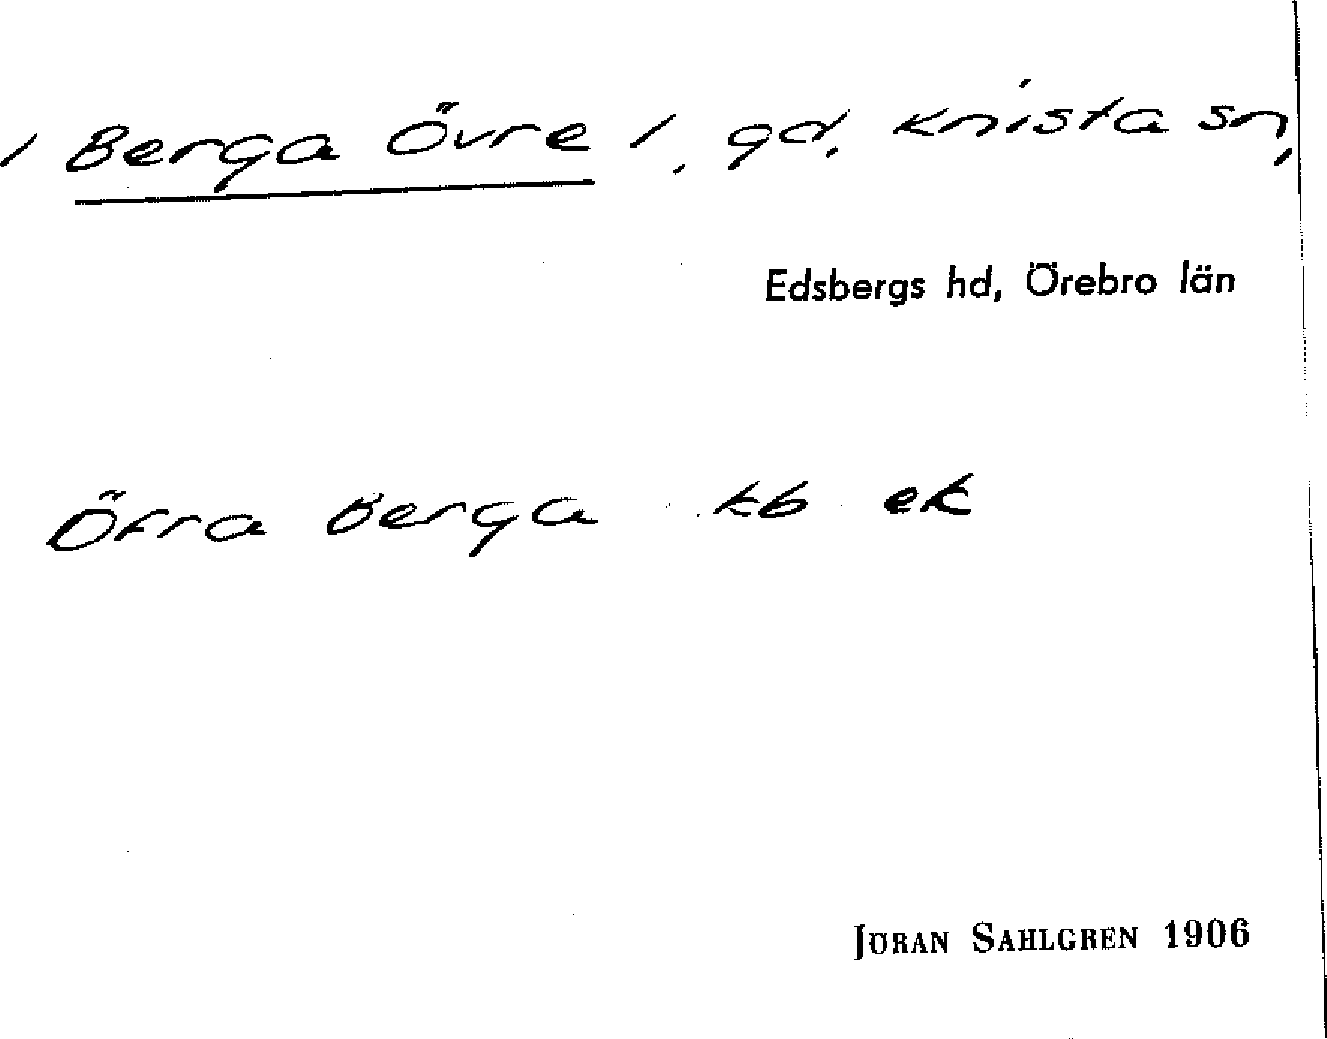 / Berga Övre /, gd, Knista sn,
Edsbergs hd, Örebro län
Öfra Berga kb ek
JÖRAN SAHLGREN 1906